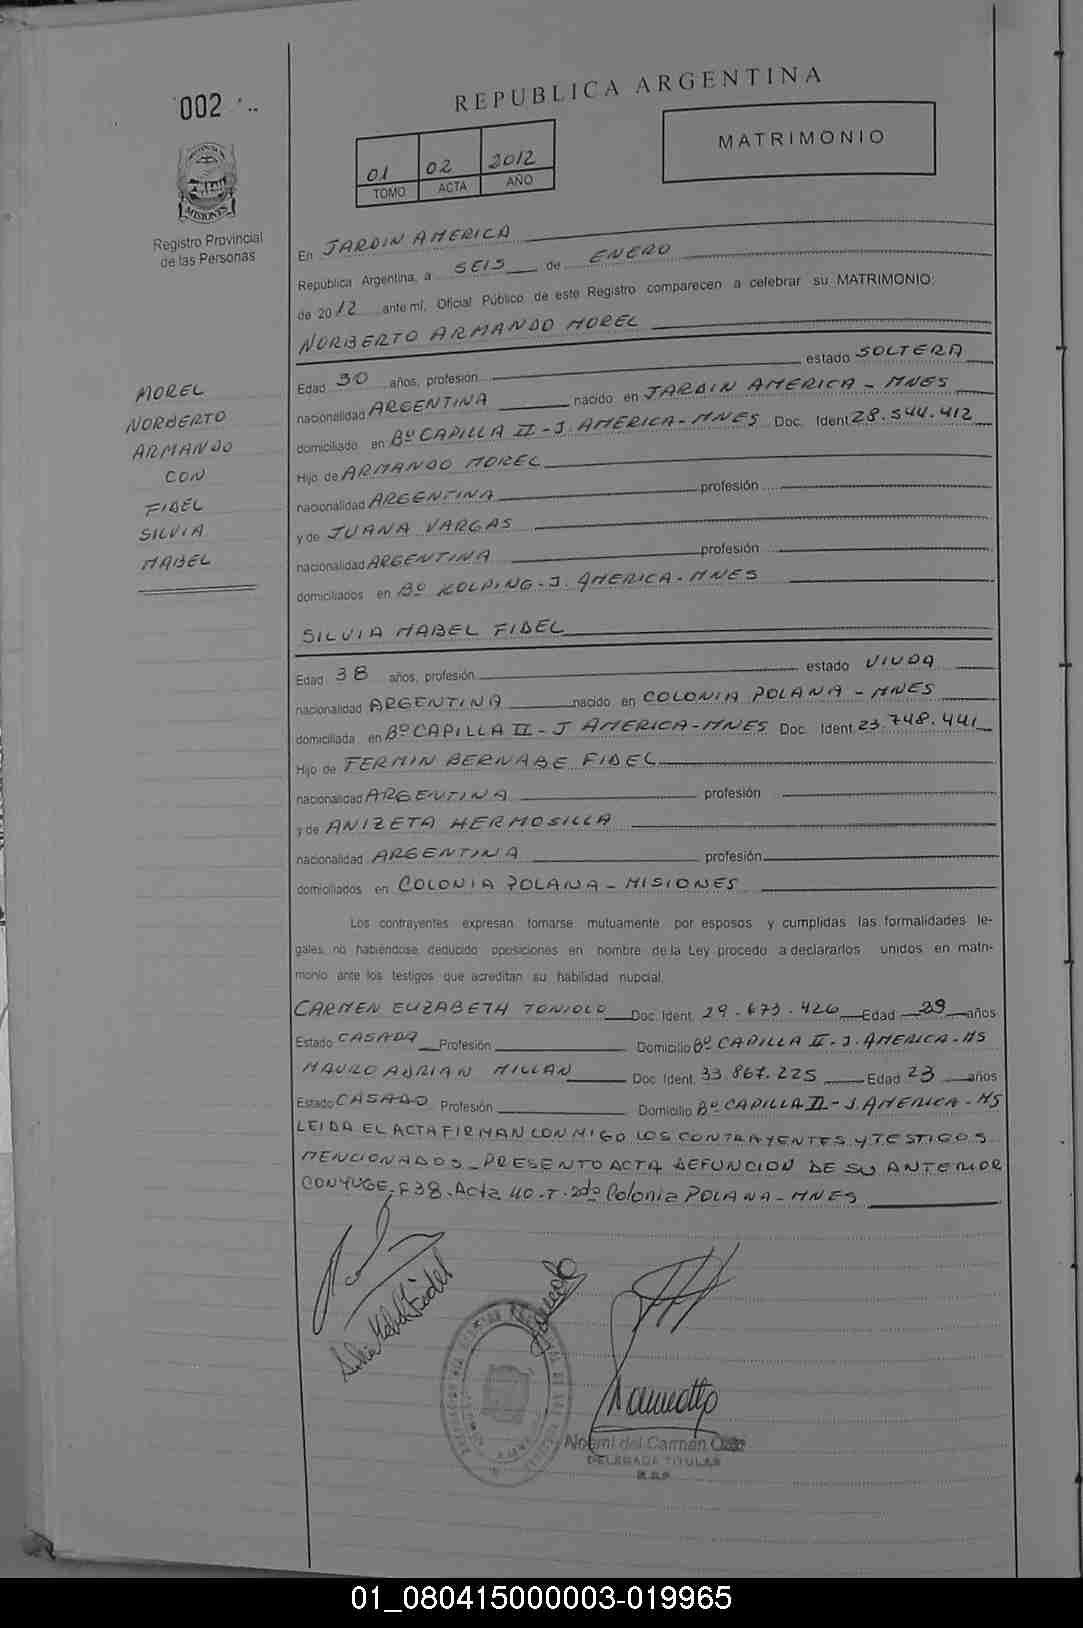 002
REPUBLICA ARGENTINA
01 02 2012
TOMO ACTA AÑO
MATRIMONIO
MISIONES
Registro Provincial
de las Personas
En JARDIN AMERICA
República Argentina, a SEIS de ENERO
de 2012 ante mí, Oficial Público de este Registro comparecen a celebrar su MATRIMONIO:
NORBERTO ARMANDO MOREL
MOREL
NORBERTO
ARMANDO
CON
FIDEL
SILVIA
MABEL
Edad 30 años, profesión estado SOLTERA
nacionalidad ARGENTINA nacido en JARDIN AMERICA - MNES
domiciliado en Bº CAPILLA II - J. AMERICA - MNES Doc. Ident 28.544.412
Hijo de ARMANDO MOREL
nacionalidad ARGENTINA profesión
y de JUANA VARGAS
nacionalidad ARGENTINA profesión
domiciliados en Bº KOLPING - J. AMERICA - MNES
SILVIA MABEL FIDEL
Edad 38 años, profesión estado VIUDA
nacionalidad ARGENTINA nacido en COLONIA POLANA - MNES
domiciliada en Bº CAPILLA II - J AMERICA - MNES Doc. Ident 23.748.441
Hijo de FERMIN BERNABE FIDEL
nacionalidad ARGENTINA profesión
y de ANIZETA HERMOSILLA
nacionalidad ARGENTINA profesión
domiciliados en COLONIA POLANA - MISIONES
Los contrayentes expresan tomarse mutuamente por esposos y cumplidas las formalidades le-
gales, no habiéndose deducido oposiciones en nombre de la Ley procedo a declararlos unidos en matri-
monio ante los testigos que acreditan su habilidad nupcial.
CARMEN ELIZABETH TONIOLO Doc. Ident. 29.673.426 Edad 29 años
Estado CASADA Profesión Domicilio Bº CAPILLA II - J. AMERICA - MS
MAURO ADRIAN MILLAN Doc. Ident. 33.867.225 Edad 23 años
Estado CASADO Profesión Domicilio Bº CAPILLA II - J. AMERICA - MS
LEIDA EL ACTA FIRMAN CONMIGO LOS CONTRAYENTES Y TESTIGOS
MENCIONADOS - PRESENTO ACTA DEFUNCION DE SU ANTERIOR
CONYUGE, F38 - Acta 40 - T. 2do Colonia POLANA - MNES
Silvia Mabel Fidel
Noemi del Carmen
DELEGADA TITULAR
01_080415000003-019965